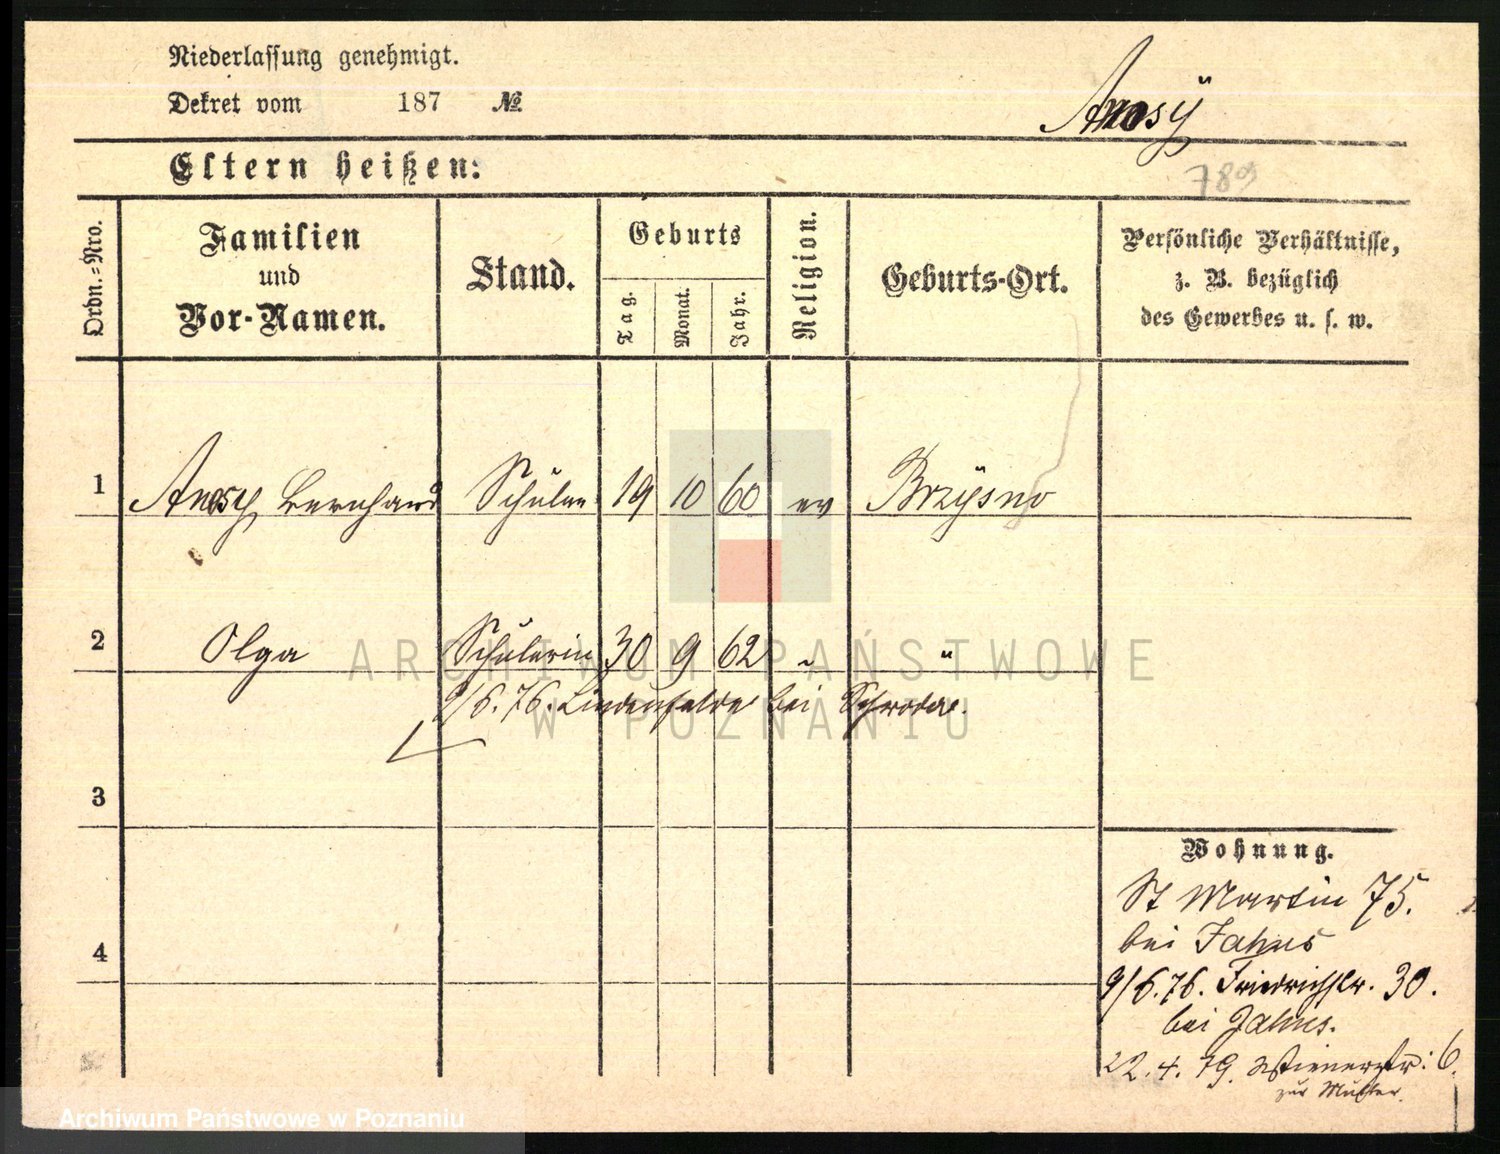 Niederlassung genehmigt.
Dekret vom 187 №
Anosÿ
789
Eltern heißen:
Ordn.=Nro.
Familien
und
Vor-Namen.
Stand.
Geburts
Tag.
Monat.
Jahr.
Religion.
Geburts-Ort.
Persönliche Verhältnisse,
z. B. bezüglich
des Gewerbes u. s. w.
1 Anosy Bernhard Schüler 19 10 60 ev Brzÿsno
2 Olga Schülerin 30 9 62 " "
9/6.76. bei Schroder.
3
4
Wohnung.
St Martin 75.
bei Jahns
9/6.76. Friedrichstr. 30.
bei Jahns.
22.4.79. Wienerstr: 6.
zur Mutter.
ARCHIWUM PAŃSTWOWE
W POZNANIU
Archiwum Państwowe w Poznaniu